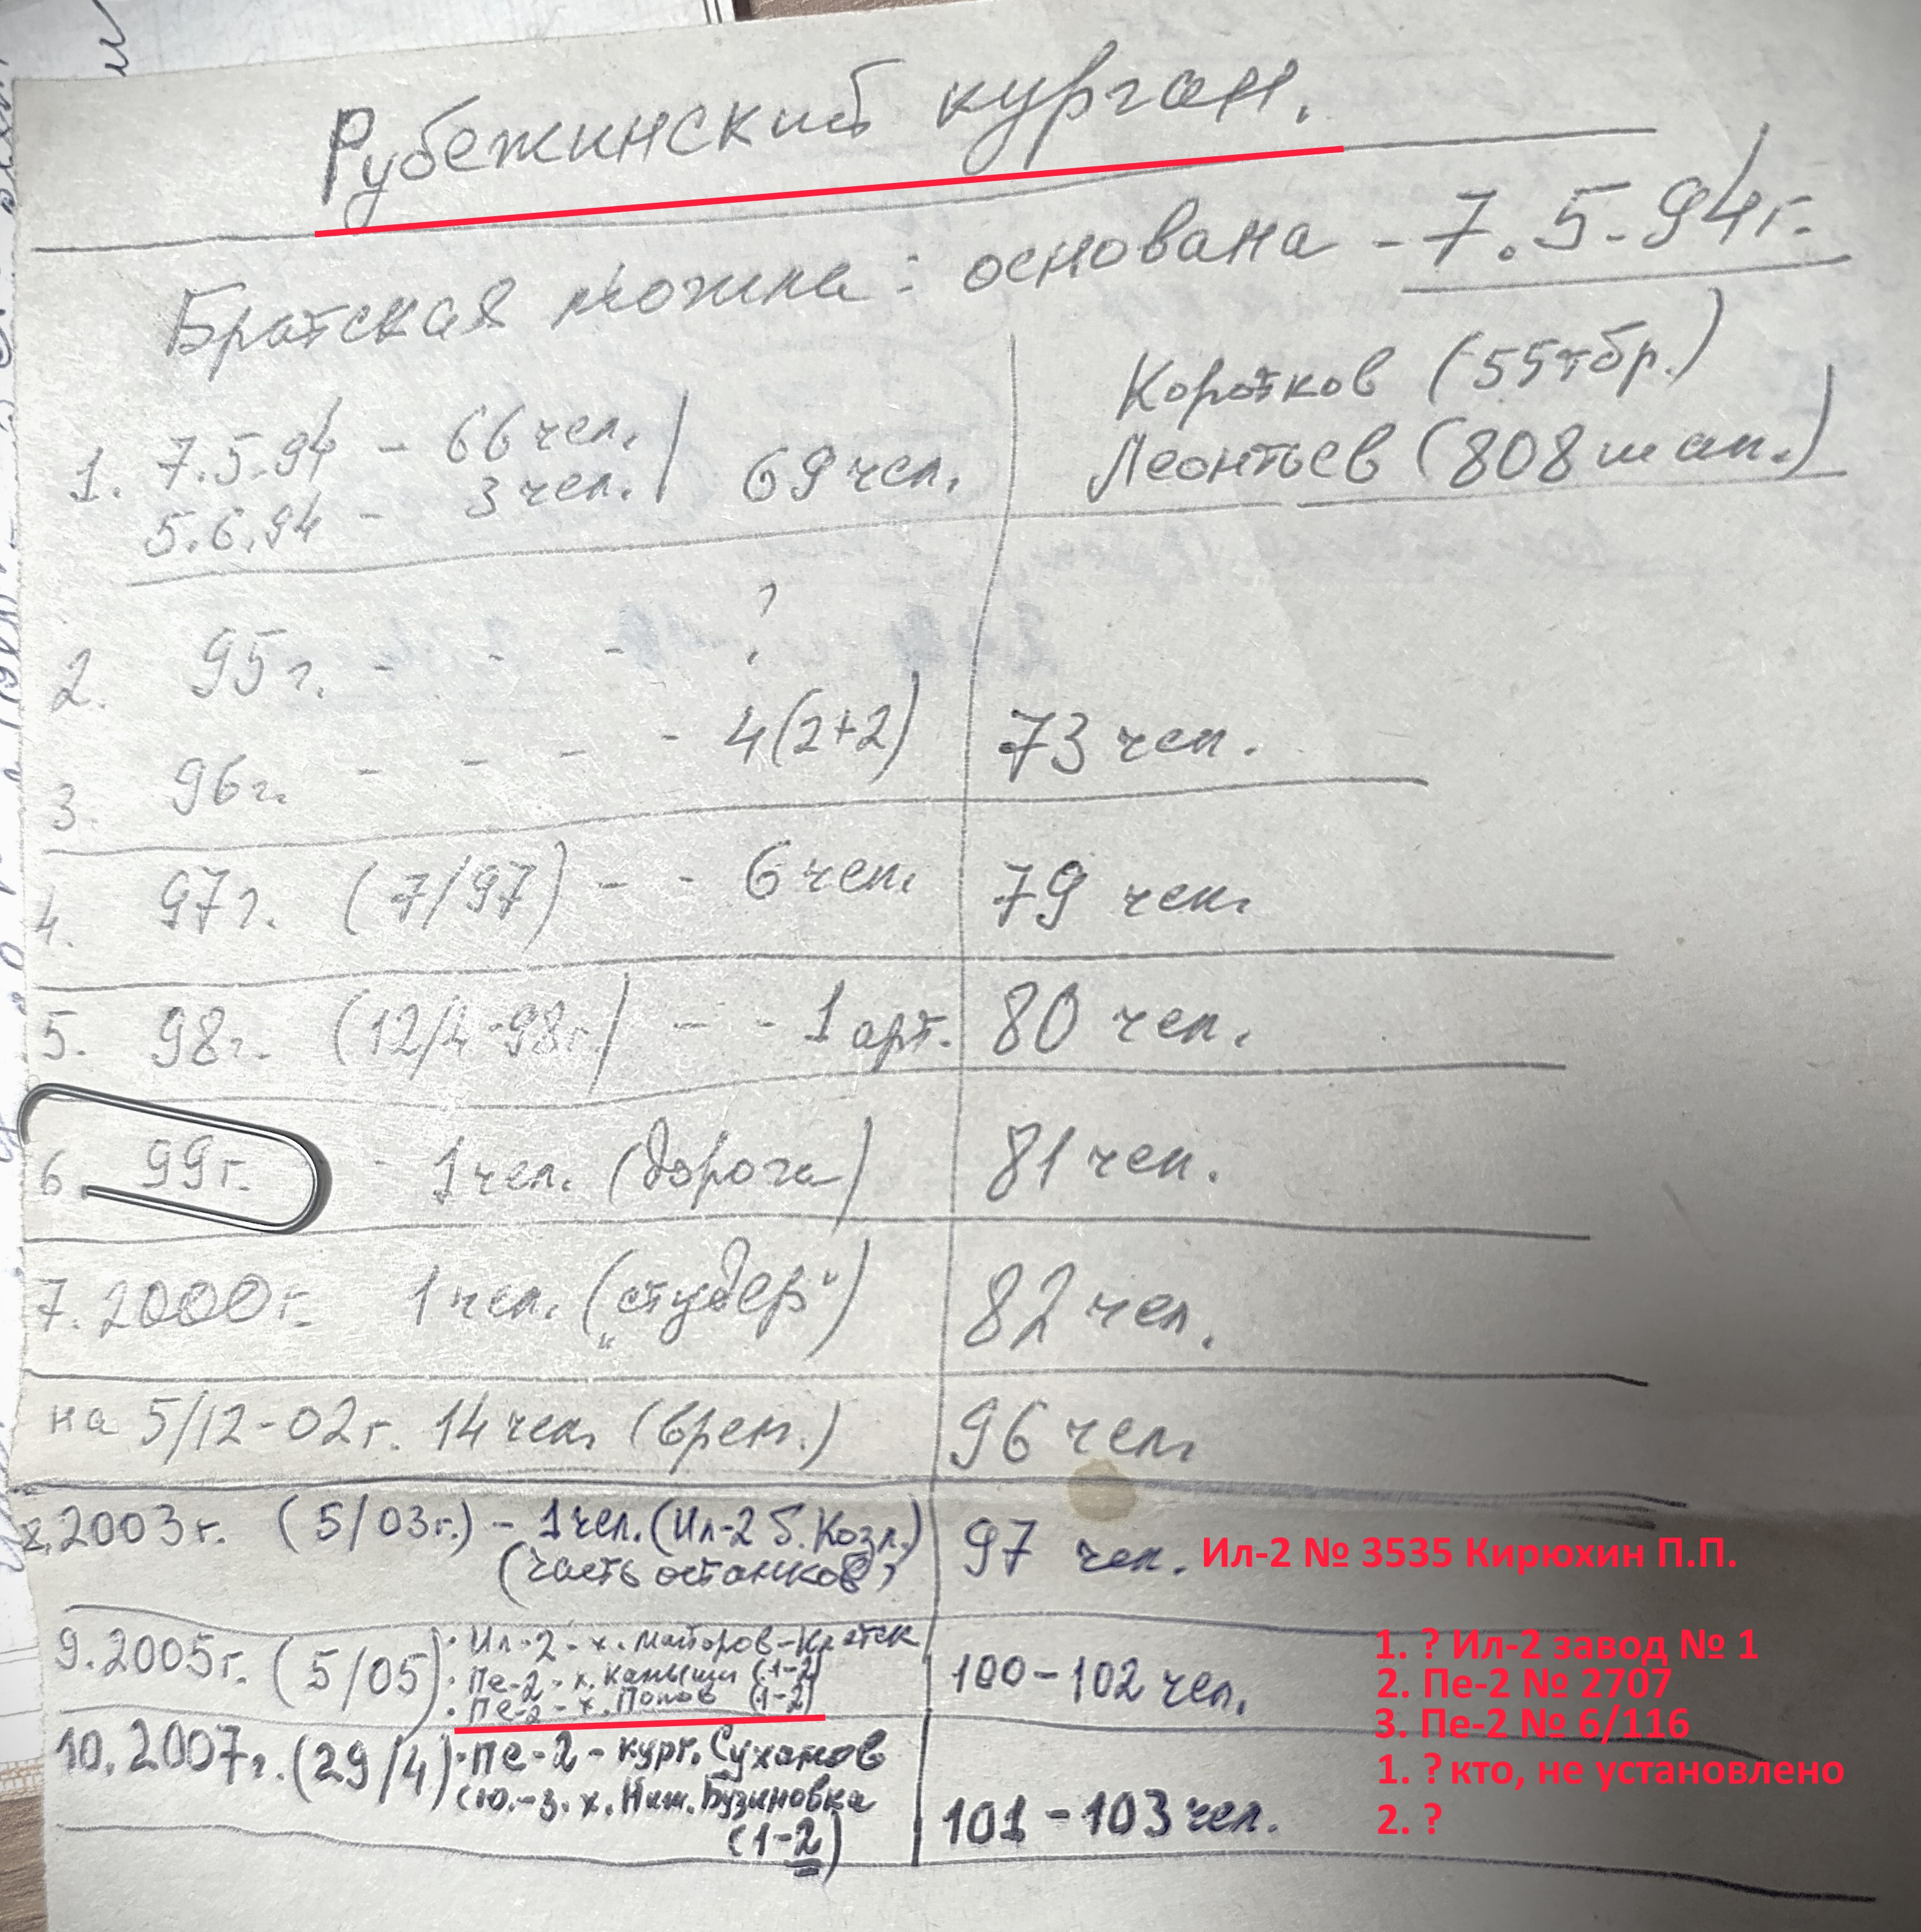 Рубежинский курган.
Братская могила: основана - 7.5.94г.
Коротков (55тбр.)
Леонтьев (808 шап.)
1. 7.5.94 - 66 чел.
5.6.94 - 3 чел. 69 чел.
2. 95г. - - - ?
3. 96г. - - - - 4(2+2) 73 чел.
4. 97г. (7/97) - - 6 чел. 79 чел.
5. 98г. (12/4-98г.) - - 1 арт. 80 чел.
6. 99г. - 1 чел. (дорога) 81 чел.
7. 2000г. 1 чел. („студер") 82 чел.
на 5/12-02г. 14 чел. (врем.) 96 чел.
2003г. (5/03г.) - 1 чел. (Ил-2 Б. Козл.) 97 чел. Ил-2 № 3535 Кирюхин П.П.
(часть останков)
9. 2005г. (5/05) · Ил-2 - х. Майоров- 1. ? Ил-2 завод № 1
· Пе-2 - х. Камыши (1-2) 100-102 чел. 2. Пе-2 № 2707
· Пе-2 - х. Попов (1-2) 3. Пе-2 № 6/116
10. 2007г. (29/4) · Пе-2 - кург. Суханов 1. ? кто, не установлено
(ю.-з. х. Ниж. Бузиновка 101-103 чел. 2. ?
(1-2)